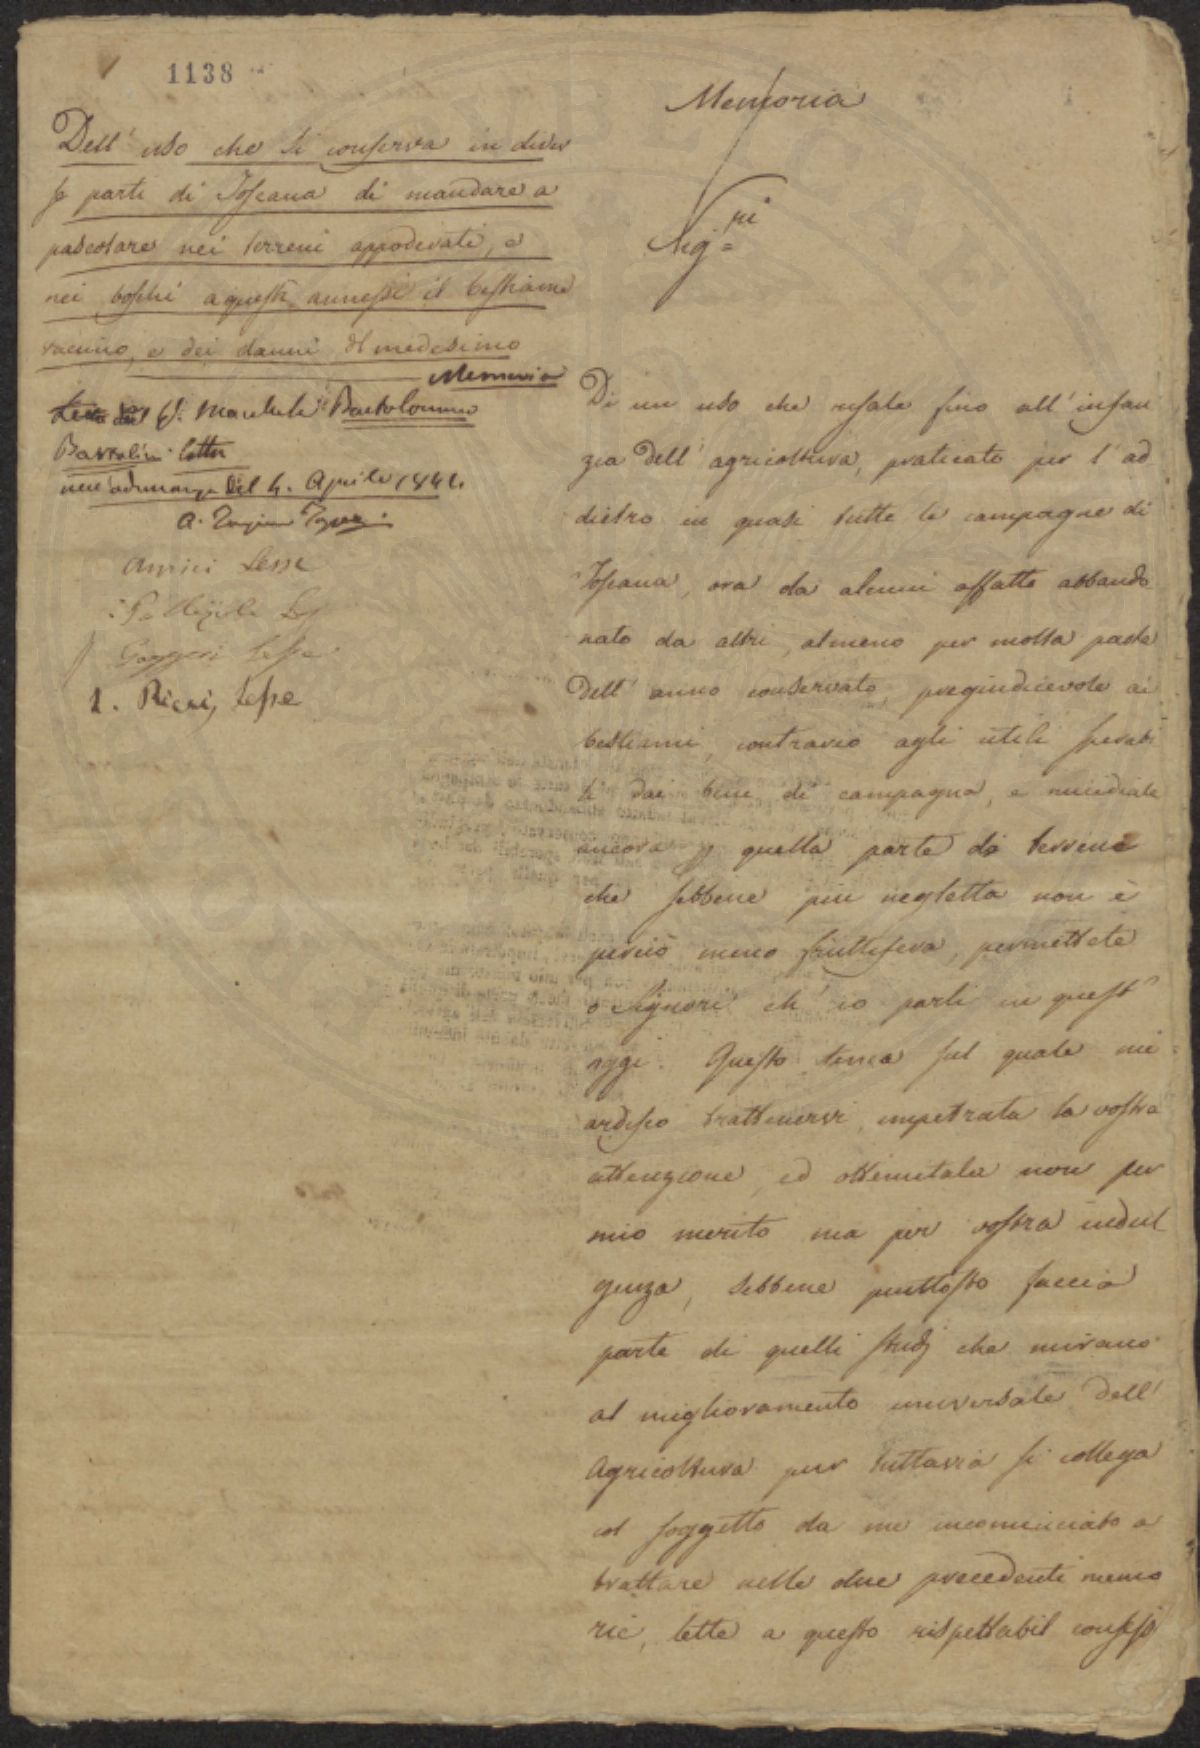 1138
Dell' uso che si conserva in diver
se parti di Toscana di mandare a
pascolare nei terreni appoderati, e
nei boschi a questi annessi il bestiame
vaccino, e dei danni del medesimo
Memoria
del S. Marchese Bartolommeo
Bartolini letta
nell'adunanza del 4. Aprile 1841.
Amici Lesse
Lesse
1. Ricci, Lesse
Memoria
Sig.ri
Di un uso che risale fino all' infan
zia dell' agricoltura, praticato per l' ad
dietro in quasi tutte le campagne di
Toscana, ora da alcuni affatto abbando
nato da altri, almeno per molta parte
dell' anno conservato, pregiudicevole ai
bestiami, contrario agli utili sperabi
li dai beni di campagna, e micidiale
ancora p quella parte di terreno
che sebbene più negletta non è
perciò meno fruttifera, permettete
o Signori ch' io parli in quest'
oggi. Questo tema sul quale mi
ardisco trattenervi, impetrata la vostra
attenzione, ed ottenutala non per
mio merito ma per vostra indul
genza, sebbene piuttosto faccia
parte di quelli studj che mirano
al miglioramento universale dell'
Agricoltura pur tuttavia si collega
col soggetto da me incominciato a
trattare nelle due precedenti memo
rie, lette a questo rispettabil consesso